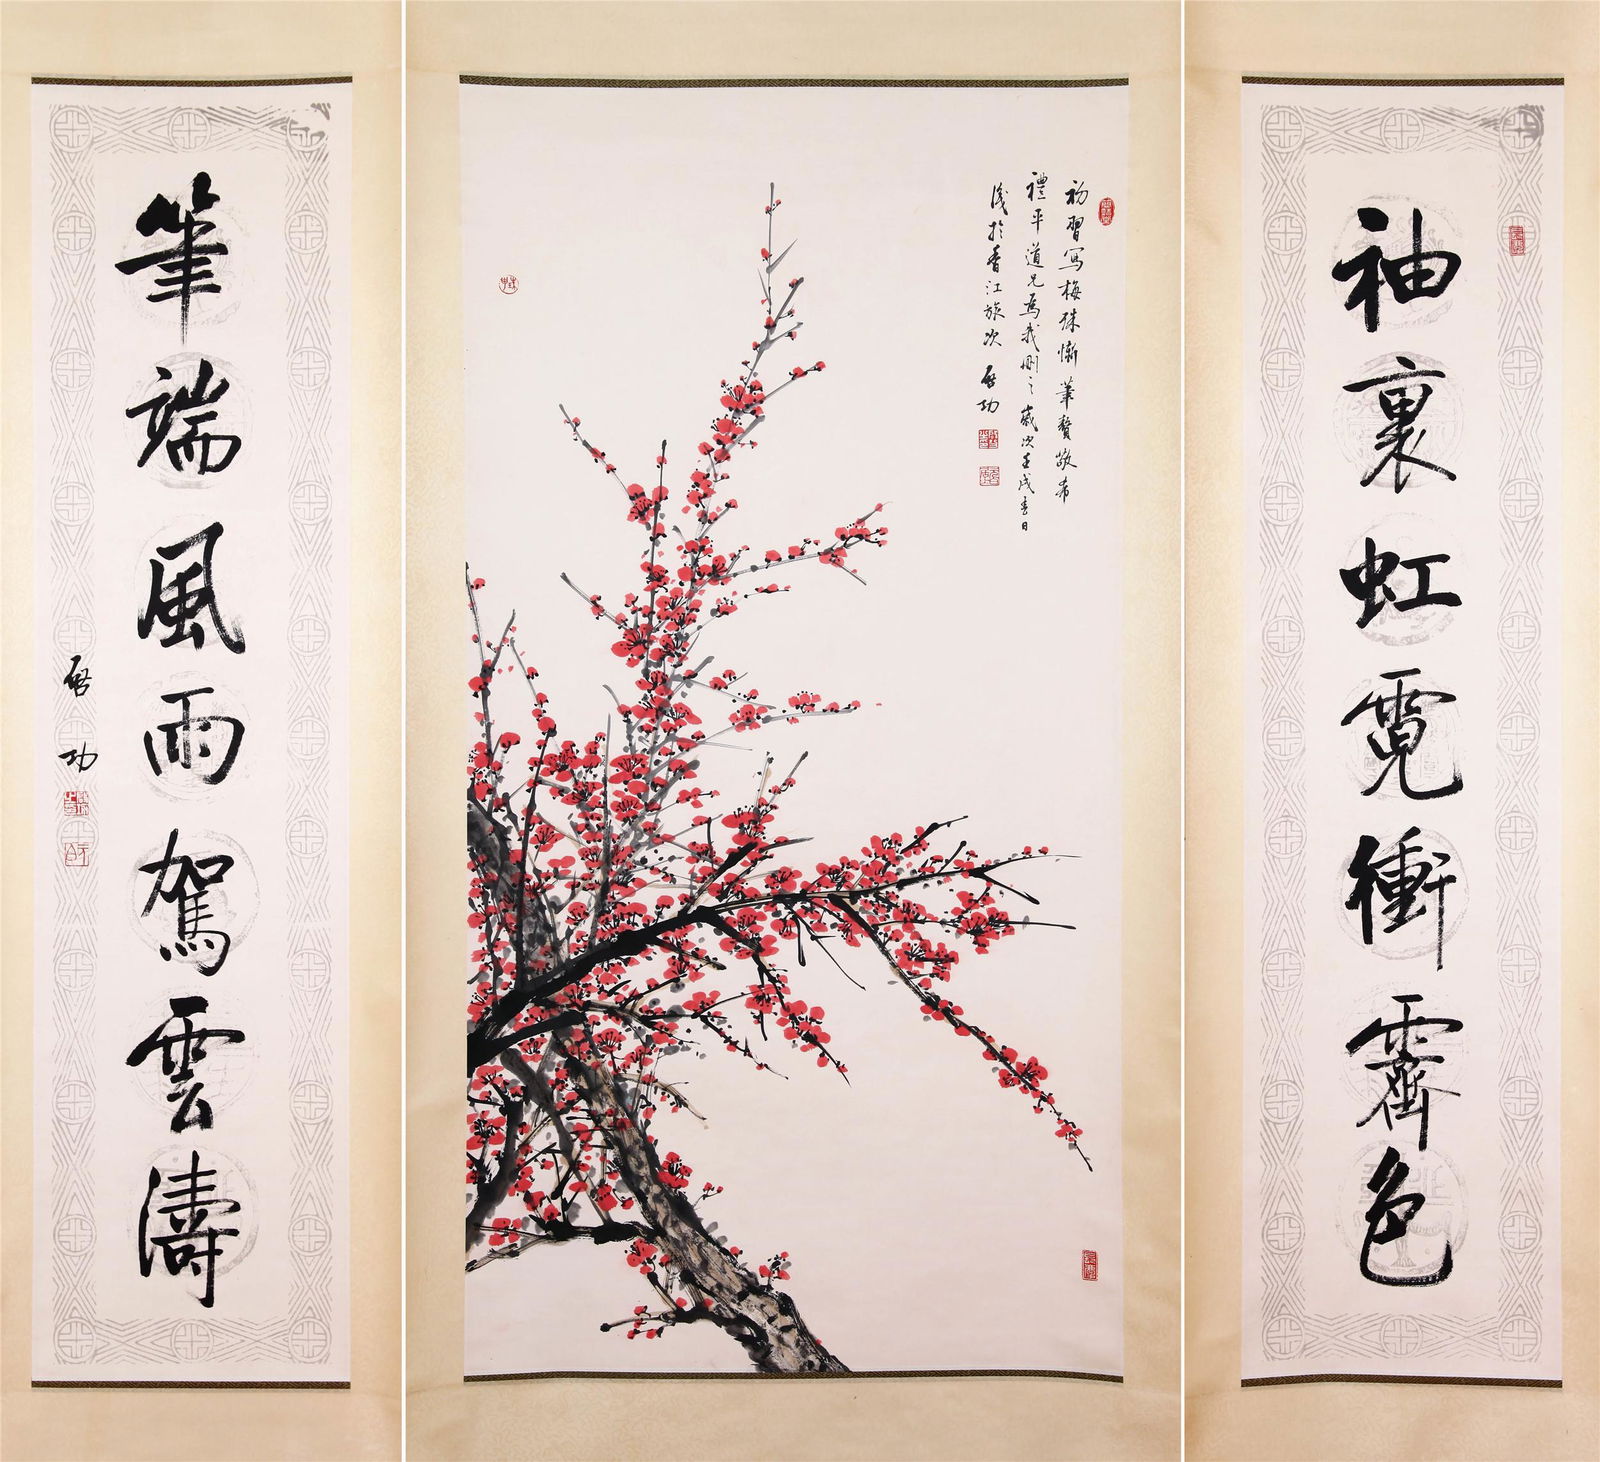 袖裏虹霓衝霽色
初習寫梅殊慚筆贅敬希
禮平道兄為我刪之歲次壬戌春日
淺於香江旅次 啟功
筆端風雨駕雲濤
啟功